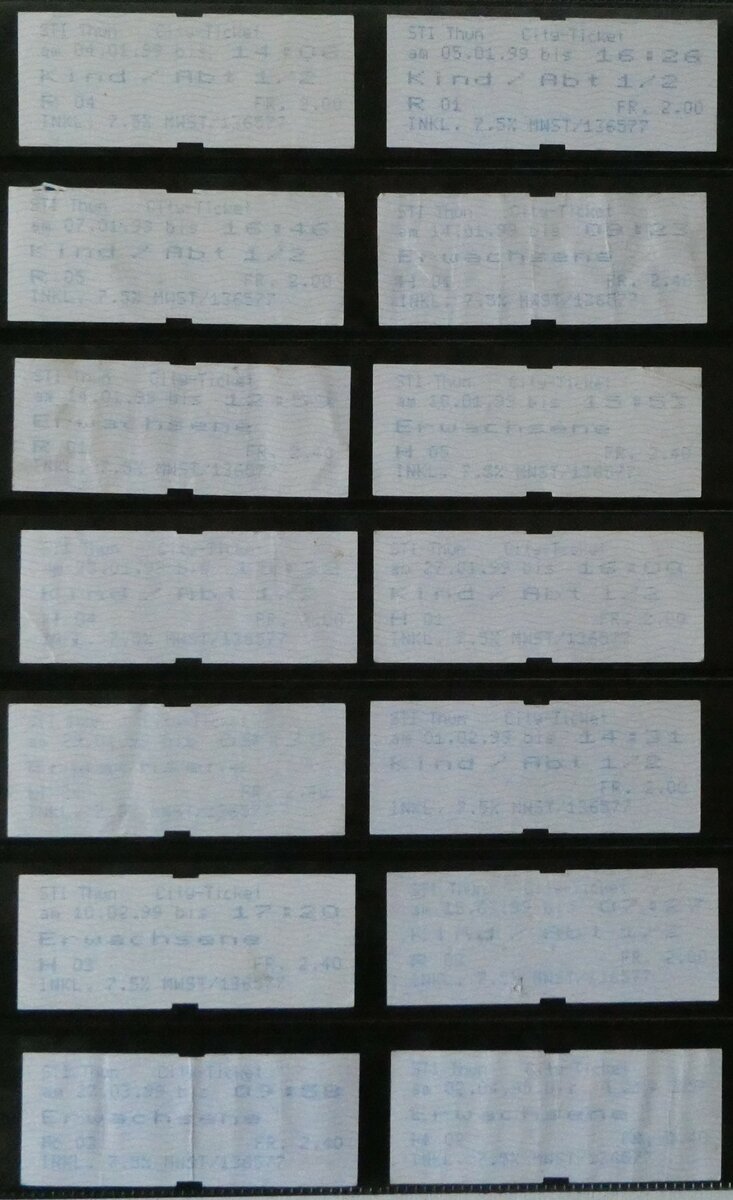 STI Thun City-Ticket
am 04.01.99 bis 14:06
Kind / Abt 1/2
R 04 FR. 2.00
INKL. 7.5% MWST/136577
STI Thun City-Ticket
am 05.01.99 bis 16:26
Kind / Abt 1/2
R 01 FR. 2.00
INKL. 7.5% MWST/136577
STI Thun City-Ticket
am 07.01.99 bis 16:46
Kind / Abt 1/2
R 05 FR. 2.00
INKL. 7.5% MWST/136577
STI Thun City-Ticket
am 14.01.99 bis 09:23
Erwachsene
FR. 2.40
INKL. 7.5% MWST/136577
STI Thun City-Ticket
am 14.01.99 bis
Erwachsene
R FR. 2.40
INKL. 7.5% MWST/136577
STI Thun City-Ticket
am 18.01.99 bis 15:53
Erwachsene
H 05 FR. 2.40
INKL. 7.5% MWST/136577
STI Thun City-Ticket
bis
Kind / Abt 1/2
H 04 FR. 2.00
INKL. 7.5% MWST/136577
STI Thun City-Ticket
am 27.01.99 bis 16:00
Kind / Abt 1/2
H 01 FR. 2.00
INKL. 7.5% MWST/136577
STI Thun City-Ticket
Erwachsene
FR. 2.40
STI Thun City-Ticket
am 01.02.99 bis 14:31
Kind / Abt 1/2
FR. 2.00
INKL. 7.5% MWST/136577
STI Thun City-Ticket
am 10.02.99 bis 17:20
Erwachsene
H 03 FR. 2.40
INKL. 7.5% MWST/136577
STI Thun City-Ticket
am bis 07:27
Kind / Abt 1/2
R FR. 2.00
INKL. 7.5% MWST/136577
STI Thun City-Ticket
am bis 09:58
Erwachsene
FR. 2.40
INKL. 7.5% MWST/136577
STI Thun City-Ticket
am bis
Erwachsene
INKL. 7.5% MWST/136577